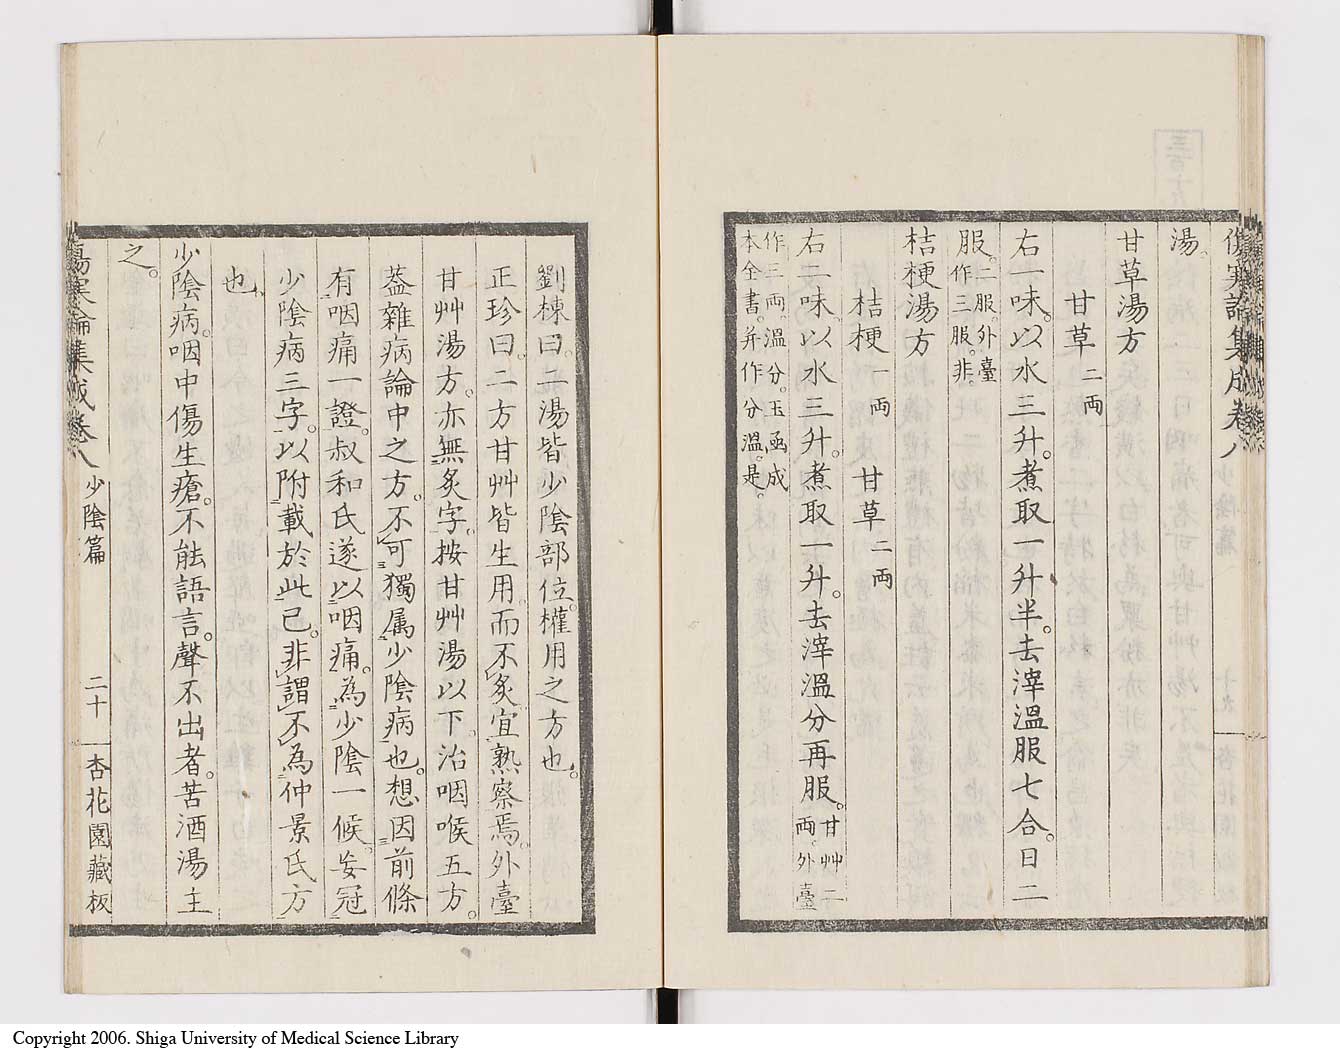 湯。
甘草湯方
甘草二両
右一味。以水三升。煮取一升半。去滓溫服七合。日二
服。二服。外臺作三服。非。
桔梗湯方
桔梗一両 甘草二両
右二味。以水三升。煮取一升。去滓溫分再服。甘艸二両。外臺
作三両。溫分。玉函成本全書。并作分溫。是。
劉棟曰。二湯皆少陰部位。權用之方也。
正珍曰。二方甘艸皆生用。而不炙。宜熟察焉。外臺
甘艸湯方。亦無炙字。按甘艸湯以下。治咽喉五方。
葢雜病論中之方。不可獨属少陰病也。想因前條
有咽痛一證。叔和氏遂以咽痛。為少陰一候。妄冠
少陰病三字。以附載於此已。非謂不為仲景氏方
也。
少陰病。咽中傷生瘡。不能語言。聲不出者。苦酒湯主
之。
傷寒論集成卷八 少陰篇 二十 杏花園藏板
Copyright 2006. Shiga University of Medical Science Library